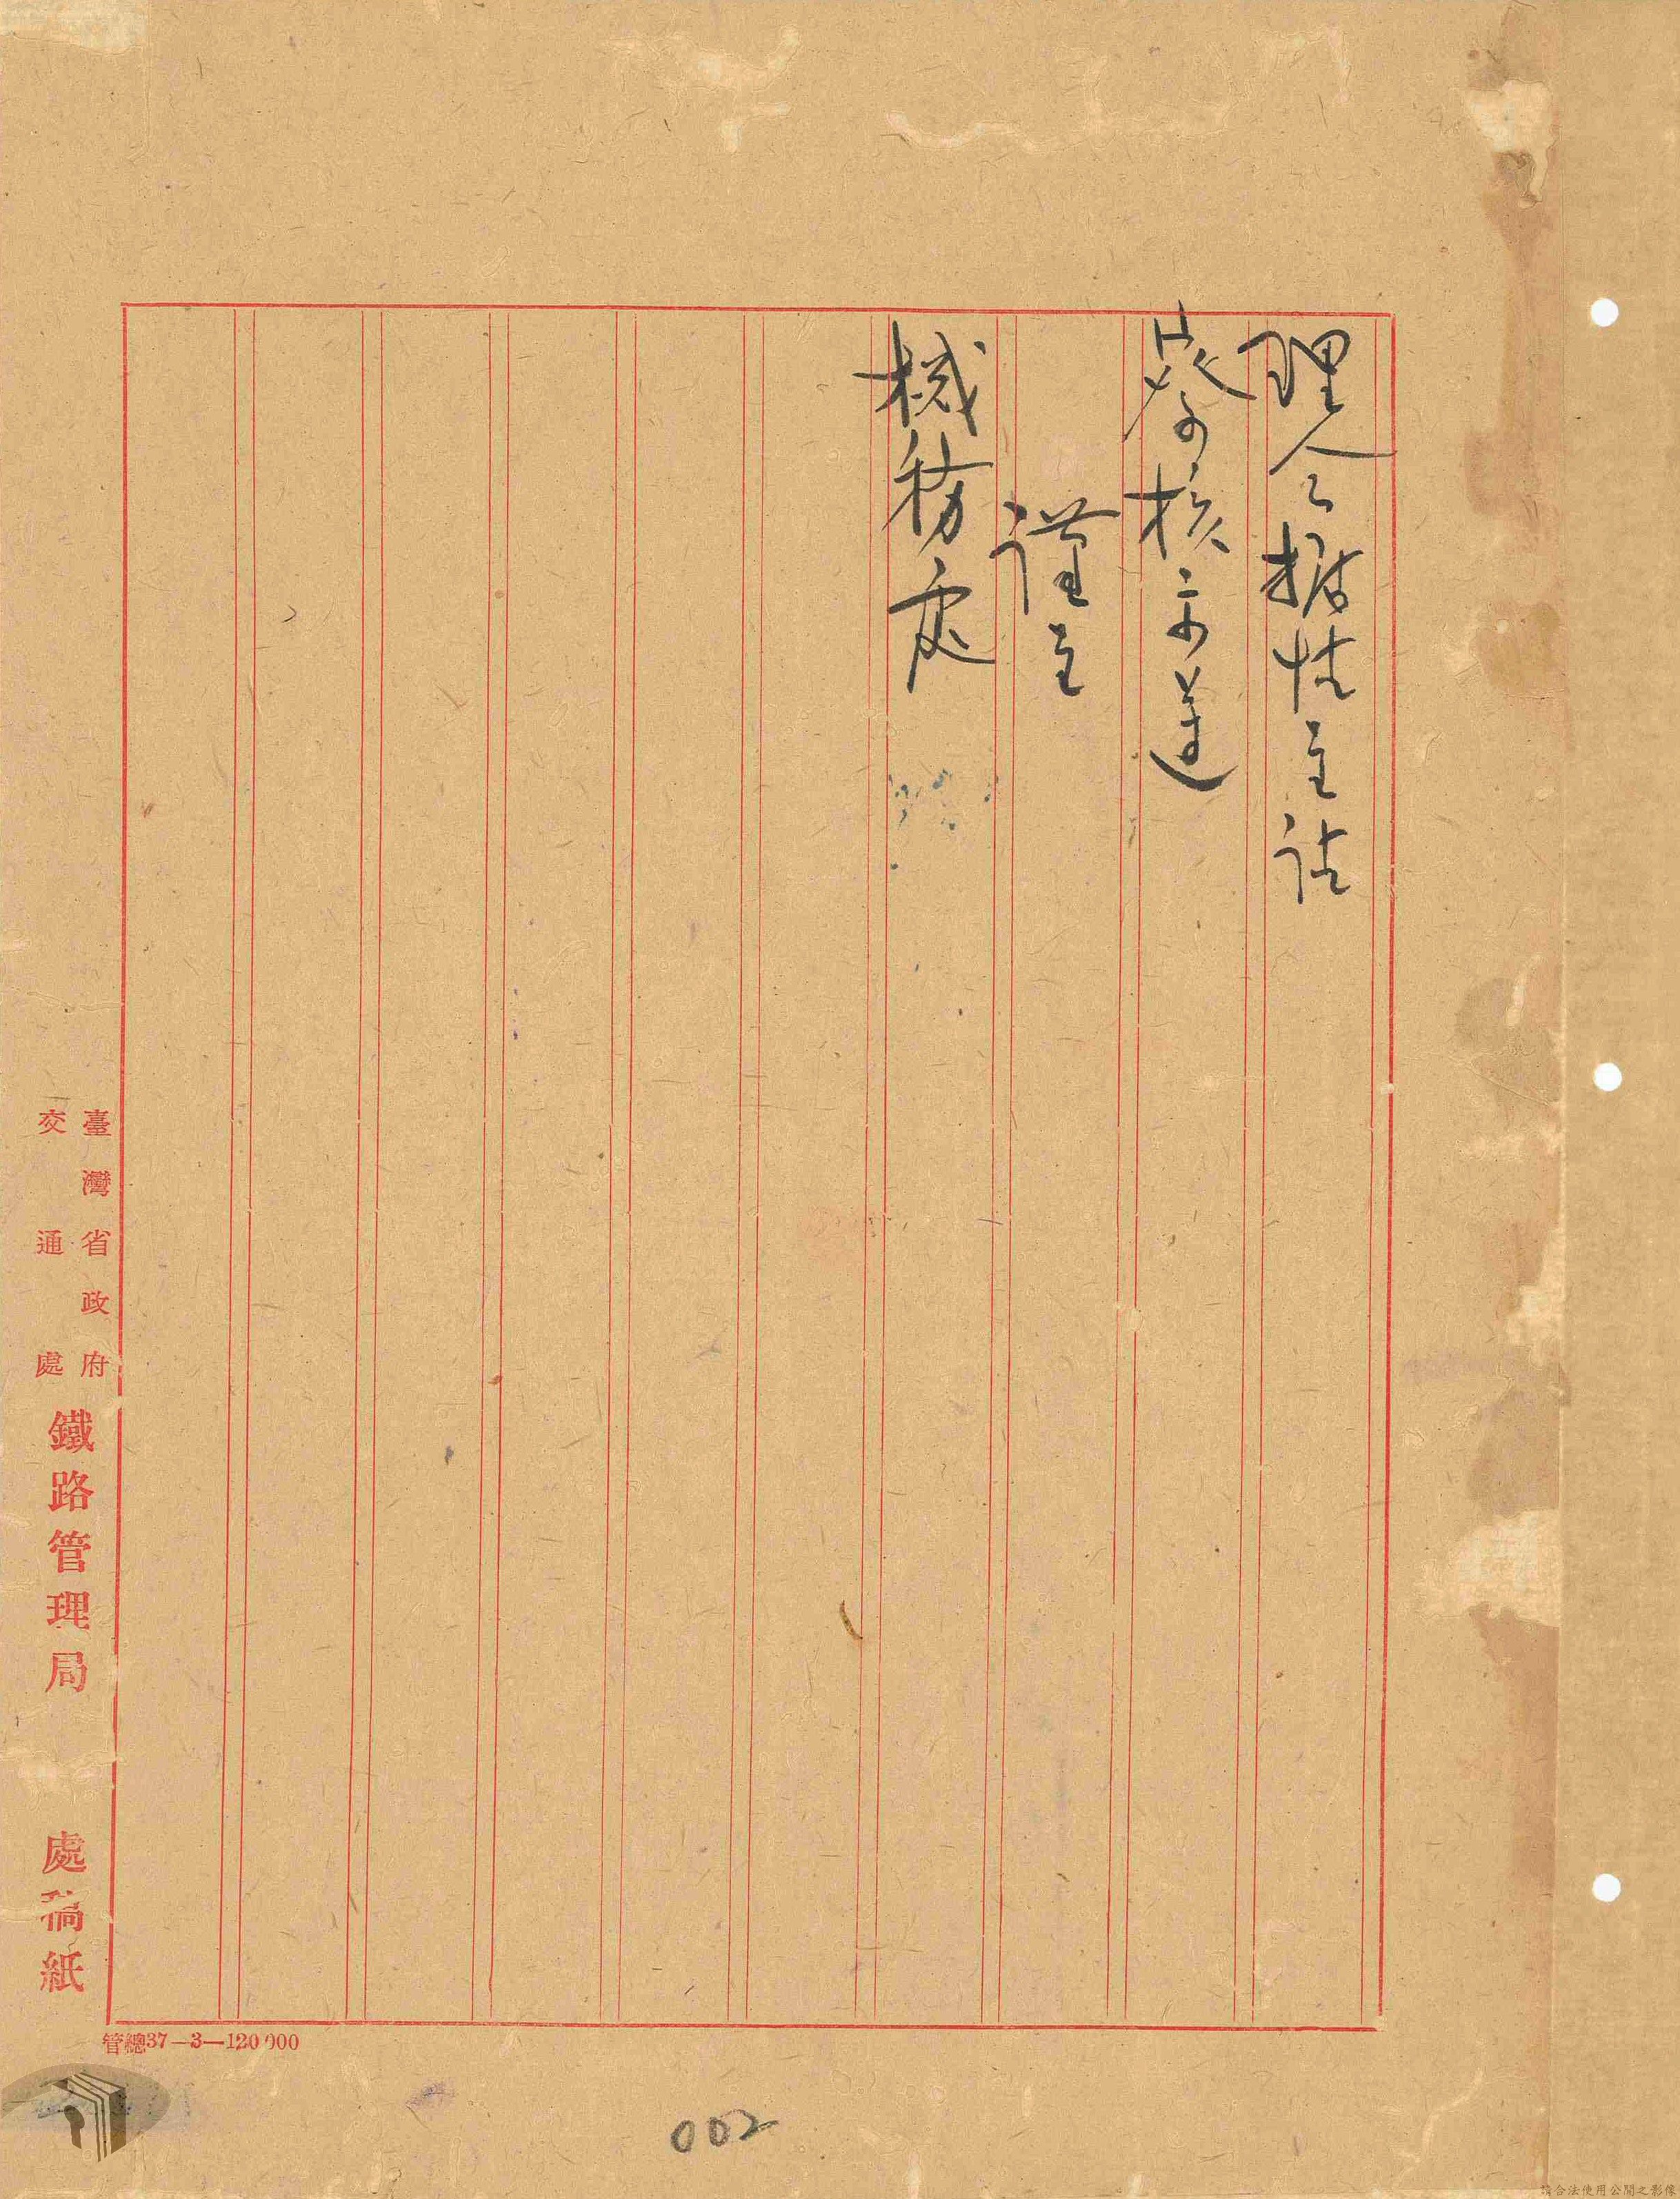 理合據情呈請
察核示遵
謹呈
機務處
臺灣省政府
交通處
鐵路管理局 處稿紙
管總37—3—120000
002
請合法使用公開之影像